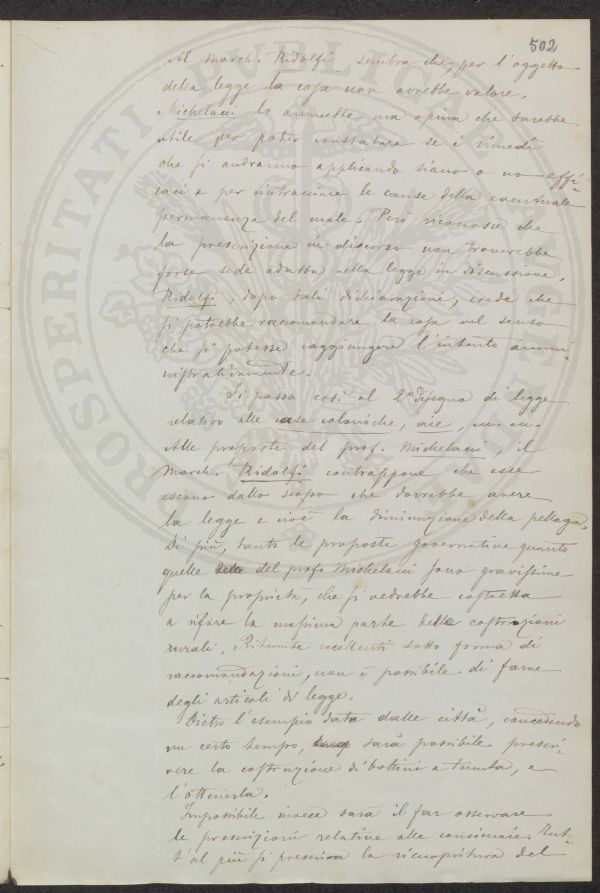 502
Al March. Ridolfi sembra che, per l'oggetto
della legge la cosa non avrebbe valore.
Michelacci lo ammette ma opina che sarebbe
utile per poter constatare se i rimedi
che si andranno applicando siano o no effi-
caci e per rintracciare le cause della eventuale
permanenza del male. Però riconosce che
la prescrizione in discorso non troverebbe
forse sede adatta nella legge in discussione.
Ridolfi, dopo tali dichiarazioni, crede che
si potrebbe raccomandare la cosa nel senso
che si potesse raggiungere l'intento ammi-
nistrativamente.
Si passa così al 2° disegno di legge
relativo alle case coloniche, aie,
Alle proposte del prof. Michelacci, il
March. Ridolfi contrappone che esse
escono dallo scopo che dovrebbe avere
la legge e cioè la diminuzione della pellagra.
Di più, tanto le proposte governative quanto
quelle del prof. Michelacci sono gravissime
per la proprietà, che si vedrebbe costretta
a rifare la massima parte delle costruzioni
rurali. Ritenute eccellenti sotto forma di
raccomandazioni, non è possibile di farne
degli articoli di legge.
Dietro l'esempio dato dalle città, concedendo
un certo tempo, sarà possibile prescri-
vere la costruzione di bottini a tenuta, e
l'ottenerla.
Impossibile invece sarà il far osservare
le prescrizioni relative alle concimaie.
t'al più si prescriva la ricuopritura del
PROSPERITATI PUBLICAE